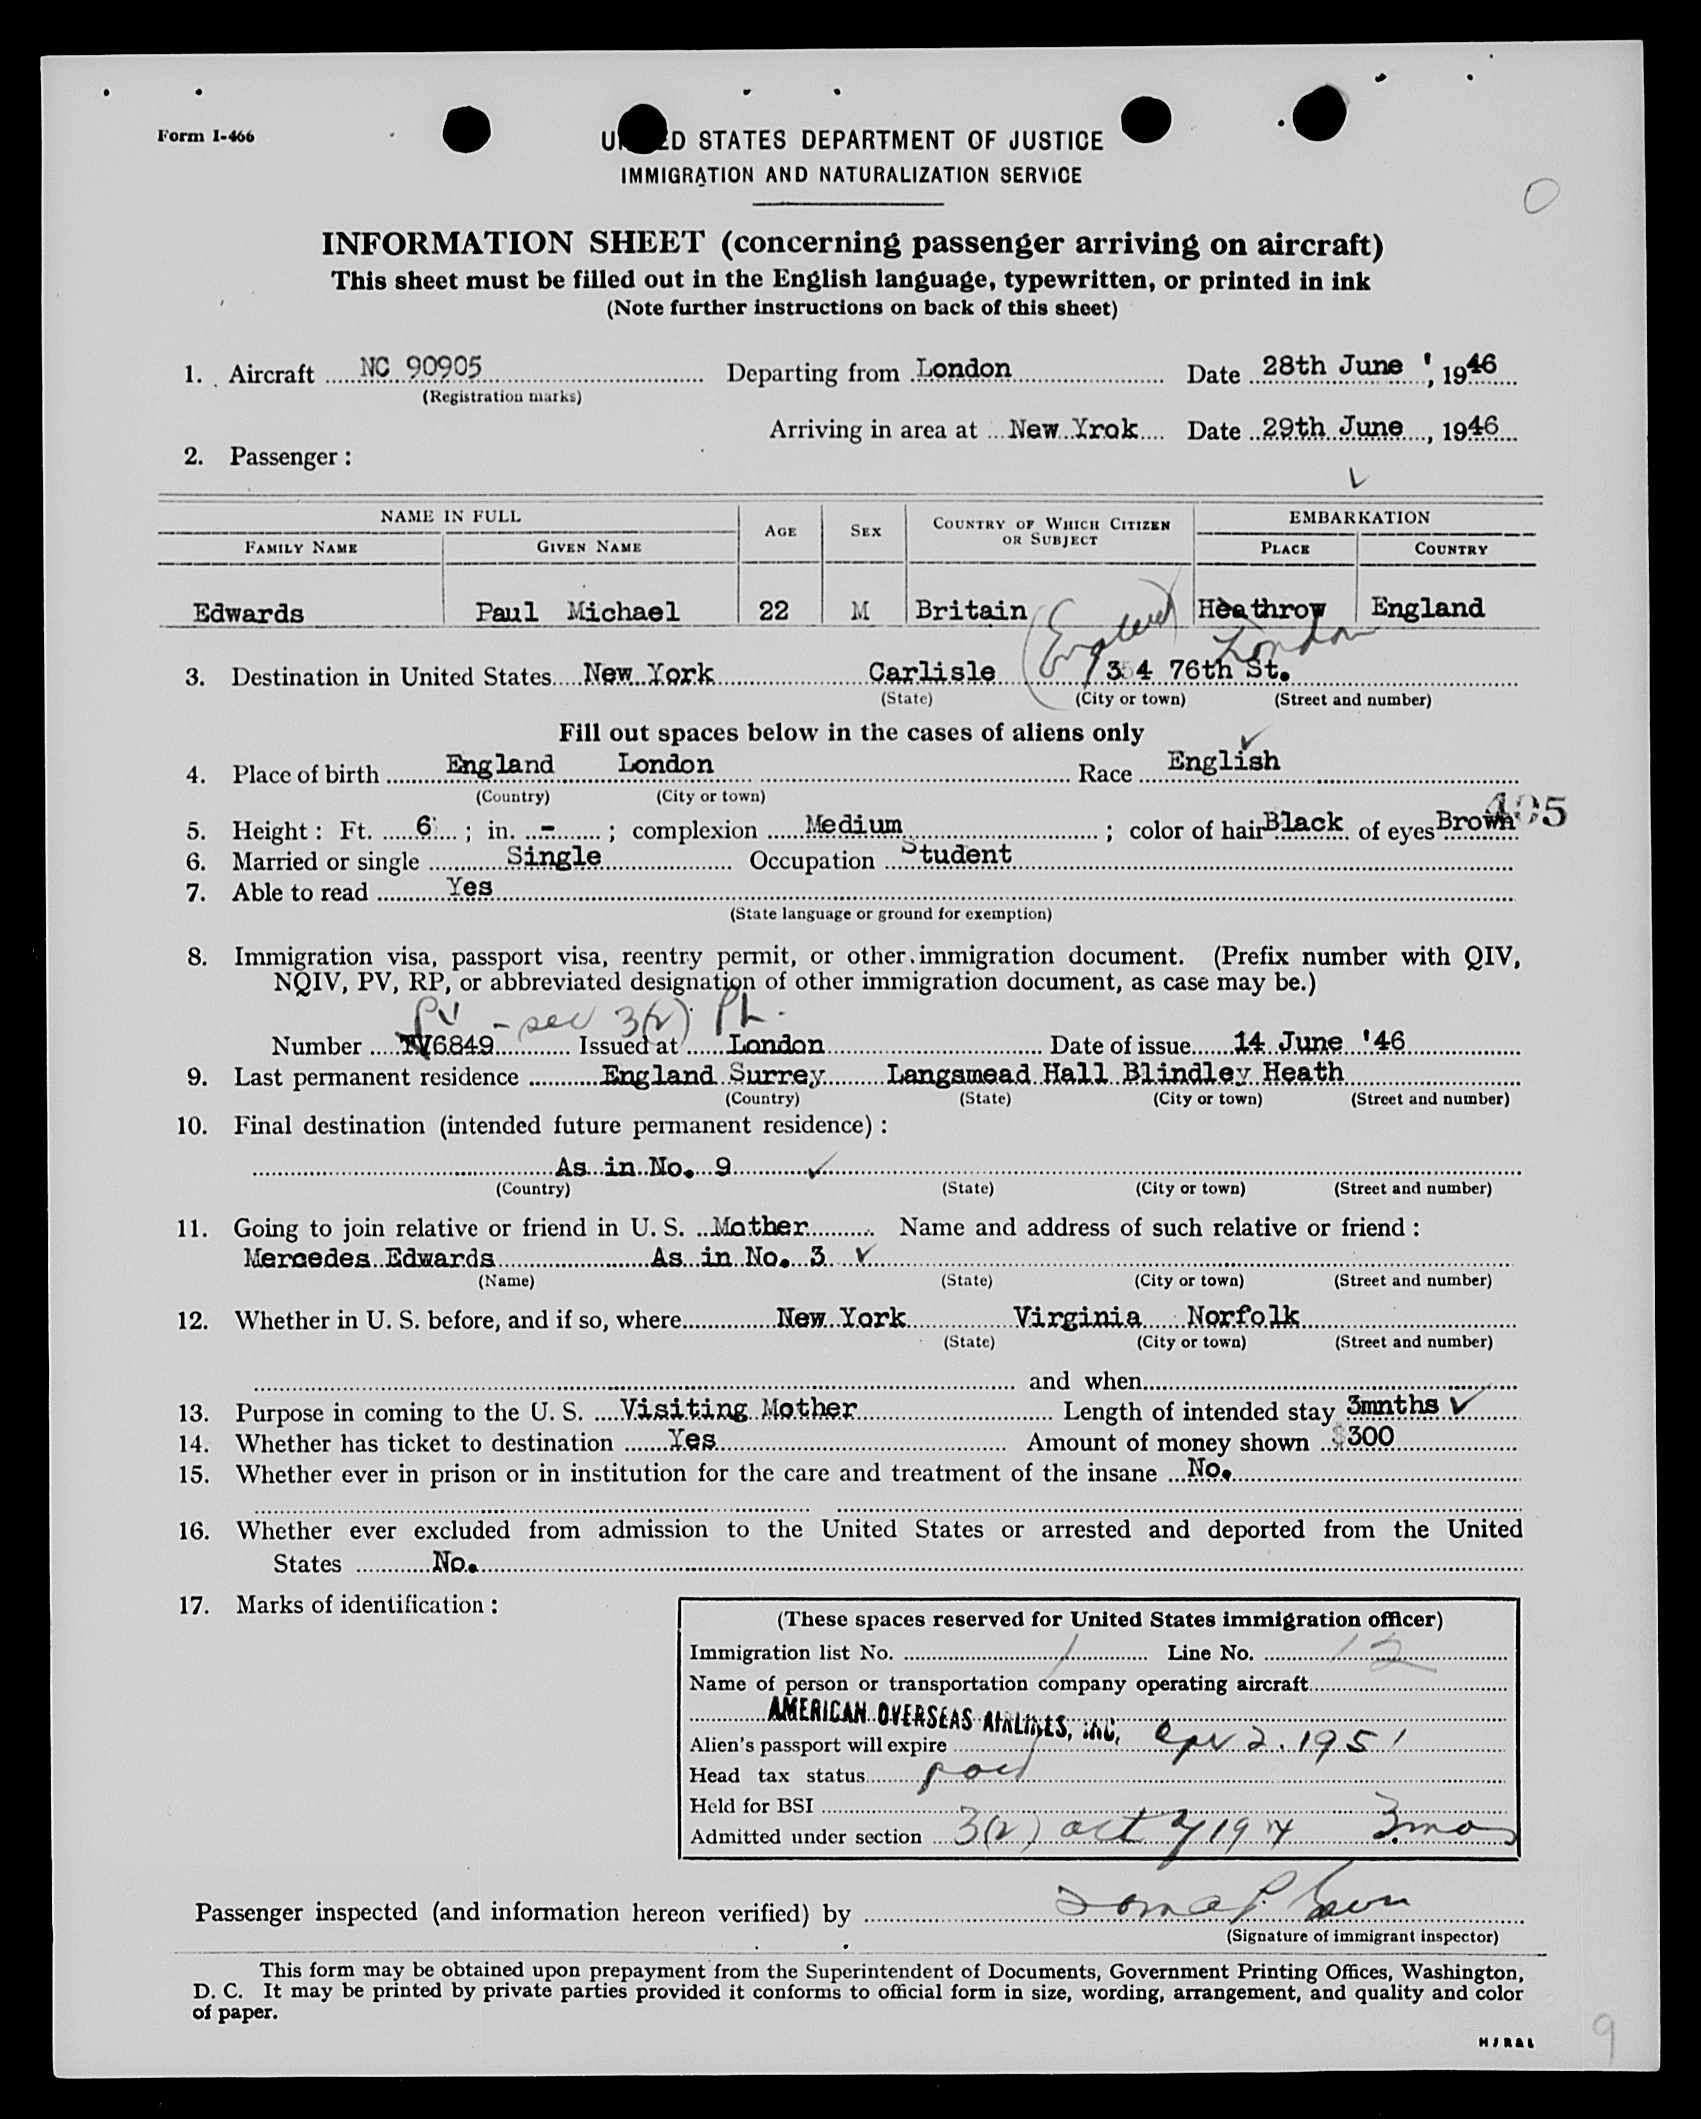 Form I-466
UNITED STATES DEPARTMENT OF JUSTICE
IMMIGRATION AND NATURALIZATION SERVICE
O
INFORMATION SHEET (concerning passenger arriving on aircraft)
This sheet must be filled out in the English language, typewritten, or printed in ink
(Note further instructions on back of this sheet)
1. Aircraft NC 90905 Departing from London Date 28th June ', 1946
(Registration marks)
Arriving in area at New Yrok Date 29th June, 1946
2. Passenger:
NAME IN FULL AGE SEX COUNTRY OF WHICH CITIZEN OR SUBJECT EMBARKATION
FAMILY NAME GIVEN NAME PLACE COUNTRY
Edwards Paul Michael 22 M Britain (England) Heathrow England
London
3. Destination in United States New York Carlisle 354 76th St.
(State) (City or town) (Street and number)
Fill out spaces below in the cases of aliens only
4. Place of birth England London Race English
(Country) (City or town)
405
5. Height: Ft. 6'; in. -; complexion Medium; color of hair Black of eyes Brown
6. Married or single Single Occupation Student
7. Able to read Yes
(State language or ground for exemption)
8. Immigration visa, passport visa, reentry permit, or other immigration document. (Prefix number with QIV,
NQIV, PV, RP, or abbreviated designation of other immigration document, as case may be.)
PV - sec 3(2)
Number 6849 Issued at London Date of issue 14 June '46
9. Last permanent residence England Surrey Langsmead Hall Blindley Heath
(Country) (State) (City or town) (Street and number)
10. Final destination (intended future permanent residence):
As in No. 9
(Country) (State) (City or town) (Street and number)
11. Going to join relative or friend in U. S. Mother Name and address of such relative or friend:
Mercedes Edwards As in No. 3
(Name) (State) (City or town) (Street and number)
12. Whether in U. S. before, and if so, where New York Virginia Norfolk
(State) (City or town) (Street and number)
and when
13. Purpose in coming to the U. S. Visiting Mother Length of intended stay 3mnths
14. Whether has ticket to destination Yes Amount of money shown $300
15. Whether ever in prison or in institution for the care and treatment of the insane No.
16. Whether ever excluded from admission to the United States or arrested and deported from the United
States No.
17. Marks of identification:
(These spaces reserved for United States immigration officer)
Immigration list No. 1 Line No. 12
Name of person or transportation company operating aircraft
AMERICAN OVERSEAS AIRLINES, INC.
Alien's passport will expire Apr 2. 1951
Head tax status paid
Held for BSI
Admitted under section 3(2) act of 1924 3 mos
Passenger inspected (and information hereon verified) by
(Signature of immigrant inspector)
This form may be obtained upon prepayment from the Superintendent of Documents, Government Printing Offices, Washington,
D. C. It may be printed by private parties provided it conforms to official form in size, wording, arrangement, and quality and color
of paper.
9